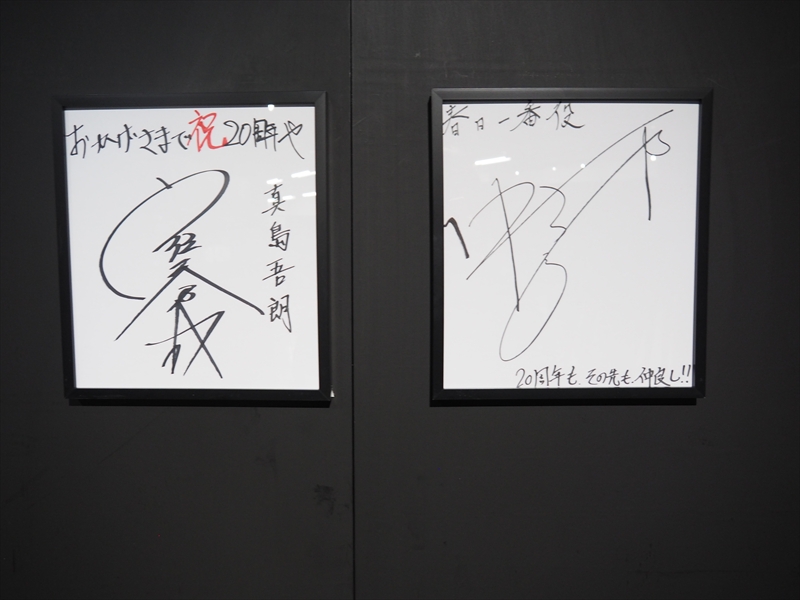 おかげさまで祝20周年や
真島吾朗
春日一番役
20周年も、その先も、仲良し!!